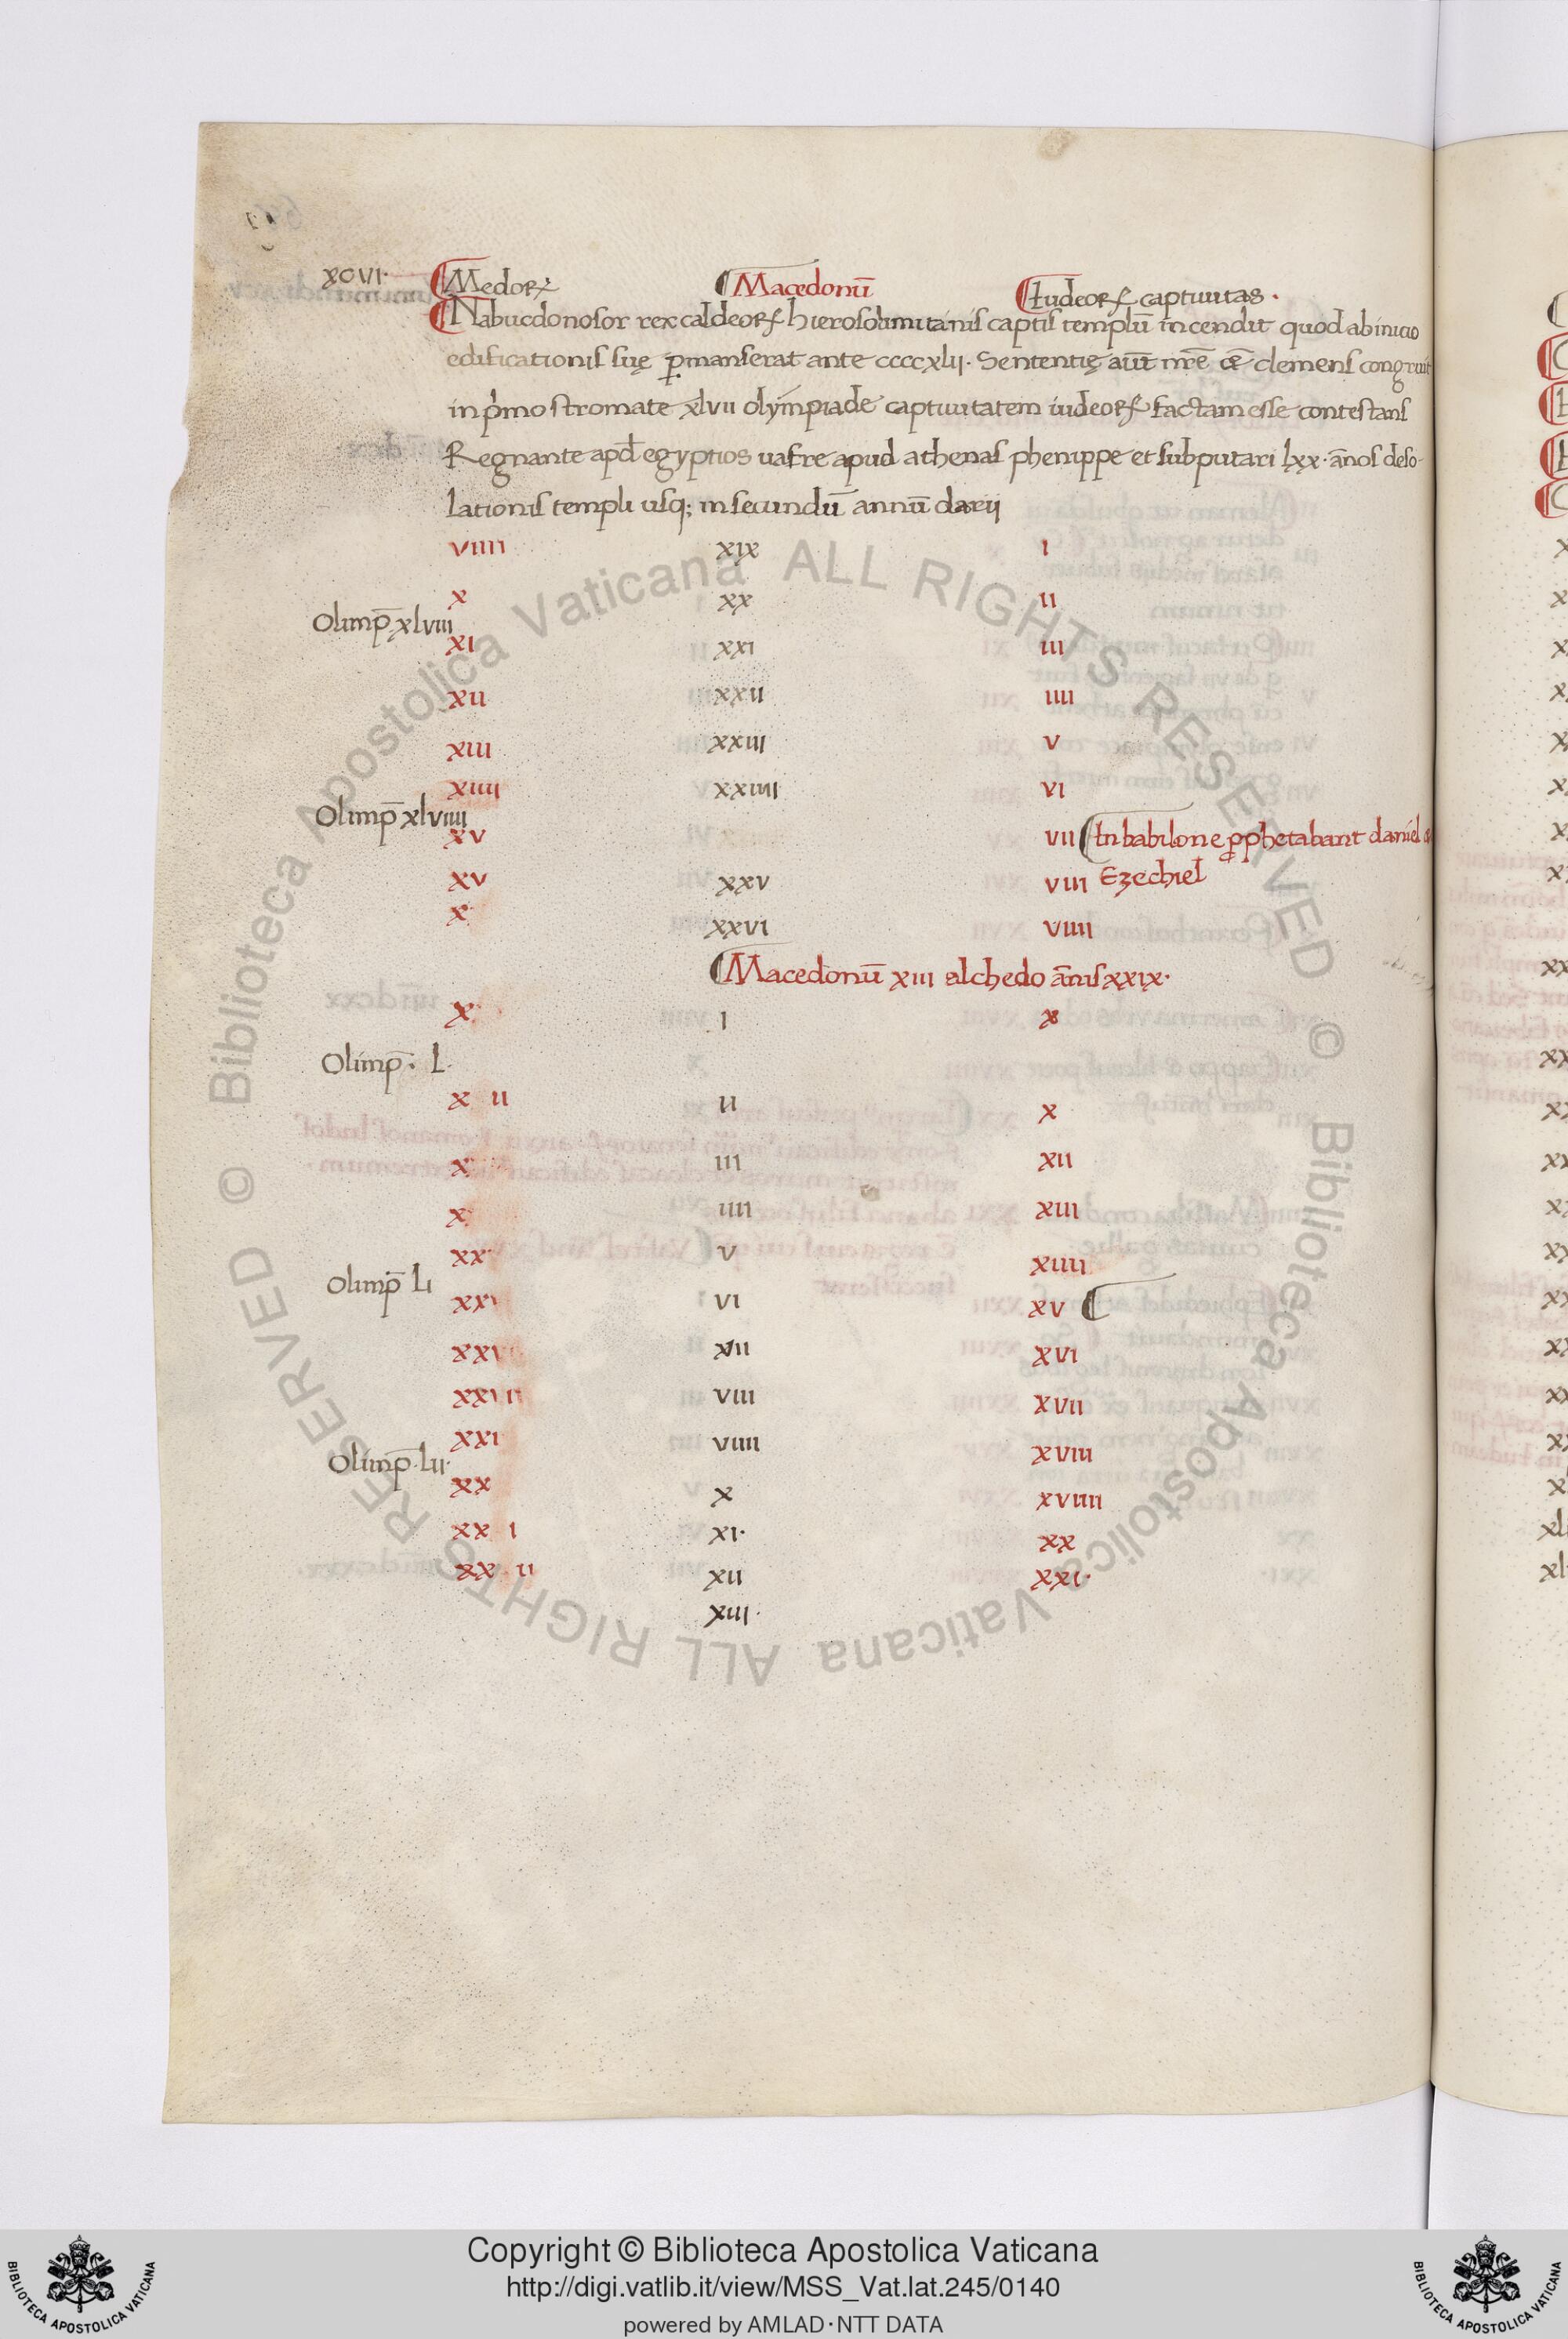 xcvi·
Medoꝝ Macedonū Iudeoꝝ captiuitas·
Nabucdonosor rex caldeoꝝ hierosolimitanis captis templū incendit quod ab inicio
edificationis suę ꝑmanserat ante ccccxlii· Sententię aūt nr̄e
clemens congruit
in pͥmo stromate xlvii olympiade captiuitatem iudeoꝝ factam esse contestans
Regnante apđ egyptios uafre apud athenas phenippe et subputari lxx· ānos deso-
lationis templi usq; in secundū annū darii
viiii xix i
x xx ii
Olimp̄ xlviii
xi xxi iii
xii xxii iiii
xiii xxiii v
xiiii xxiiii vi
Olimp̄ xlviiii
xv vii In babilone ꝓphetabant daniel
xv xxv viii Ezechiel
x xxvi viiii
Macedonū xiii alchedo ānis xxix·
x i x
Olimp̄· L·
x ii ii x
x iii xii
x iiii xiii
xx v xiiii
Olimp̄ Li
xxi vi xv
xxi vii xvi
xxi ii viii xvii
xxi viiii xviii
Olimp̄· Lii·
xx x xviiii
xx i xi· xx
xx ii xii xxi·
xiii·
Copyright © Biblioteca Apostolica Vaticana
http://digi.vatlib.it/view/MSS_Vat.lat.245/0140
powered by AMLAD·NTT DATA
Biblioteca Apostolica Vaticana ALL RIGHTS RESERVED ©
Biblioteca Apostolica Vaticana ALL RIGHTS RESERVED ©
BIBLIOTECA APOSTOLICA VATICANA
BIBLIOTECA APOSTOLICA VATICANA